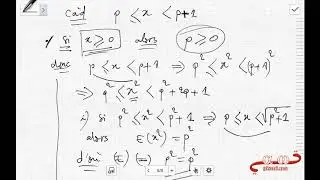 càd p ≤ x < p+1
*/ si x ≥ 0 alors p ≥ 0
donc p ≤ x < p+1 ⟹ p² ≤ x² < (p+1)²
⟹ p² ≤ x² < p²+2p+1
i) si p² ≤ x² < p²+1 ⟹ p ≤ x < √p²+1
alors E(x²) = p²
d'où (E) ⟺ p² = p²